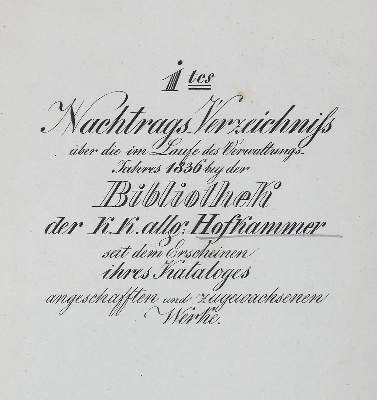 1tes
Nachtrags Verzeichniſs
über die im Laufe des Verwaltungs-
Jahres 1836 bey der
Bibliothek
der K.K. allg: Hofkammer
seit dem Erscheinen
ihres Kataloges
angeschafften und zugewachsenen
Werke.